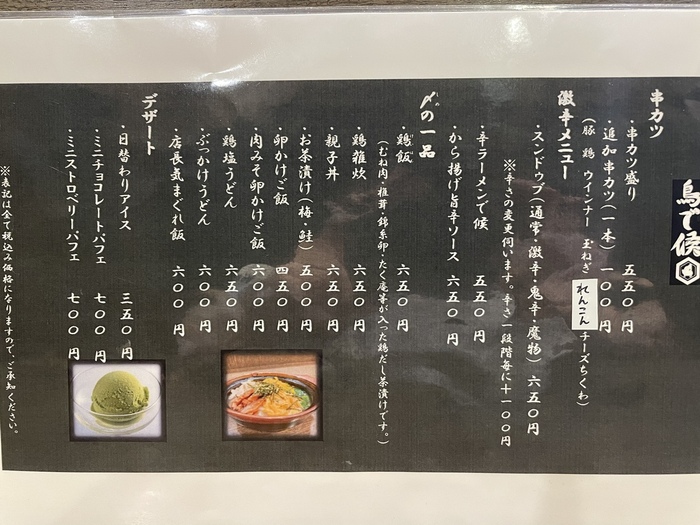 鳥で候
串カツ
・串カツ盛り 五五〇円
・追加串カツ(一本) 一〇〇円
(豚 鶏 ウインナー 玉ねぎ れんこん チーズちくわ)
激辛メニュー
・スンドゥブ(通常・激辛・鬼辛・魔物) 六五〇円
※辛さの変更伺います。辛さ一段階毎に十一〇〇円
・辛ラーメンで候 五五〇円
・から揚げ旨辛ソース 六五〇円
〆の一品
鶏飯 六五〇円
(むね肉・椎茸・錦糸卵・たく庵等が入った鶏だし茶漬けです。)
・鶏雑炊 五五〇円
・親子丼 六五〇円
・お茶漬け(梅・鮭) 五〇〇円
・卵かけご飯 四五〇円
・肉みそ卵かけご飯 六〇〇円
・鶏塩うどん 六五〇円
・ぶっかけうどん 六〇〇円
・店長気まぐれ飯 六〇〇円
デザート
・日替わりアイス 三五〇円
・ミニチョコレートパフェ 七〇〇円
・ミニストロベリーパフェ 七〇〇円
※表記は全て税込み価格になりますので、ご承知ください。